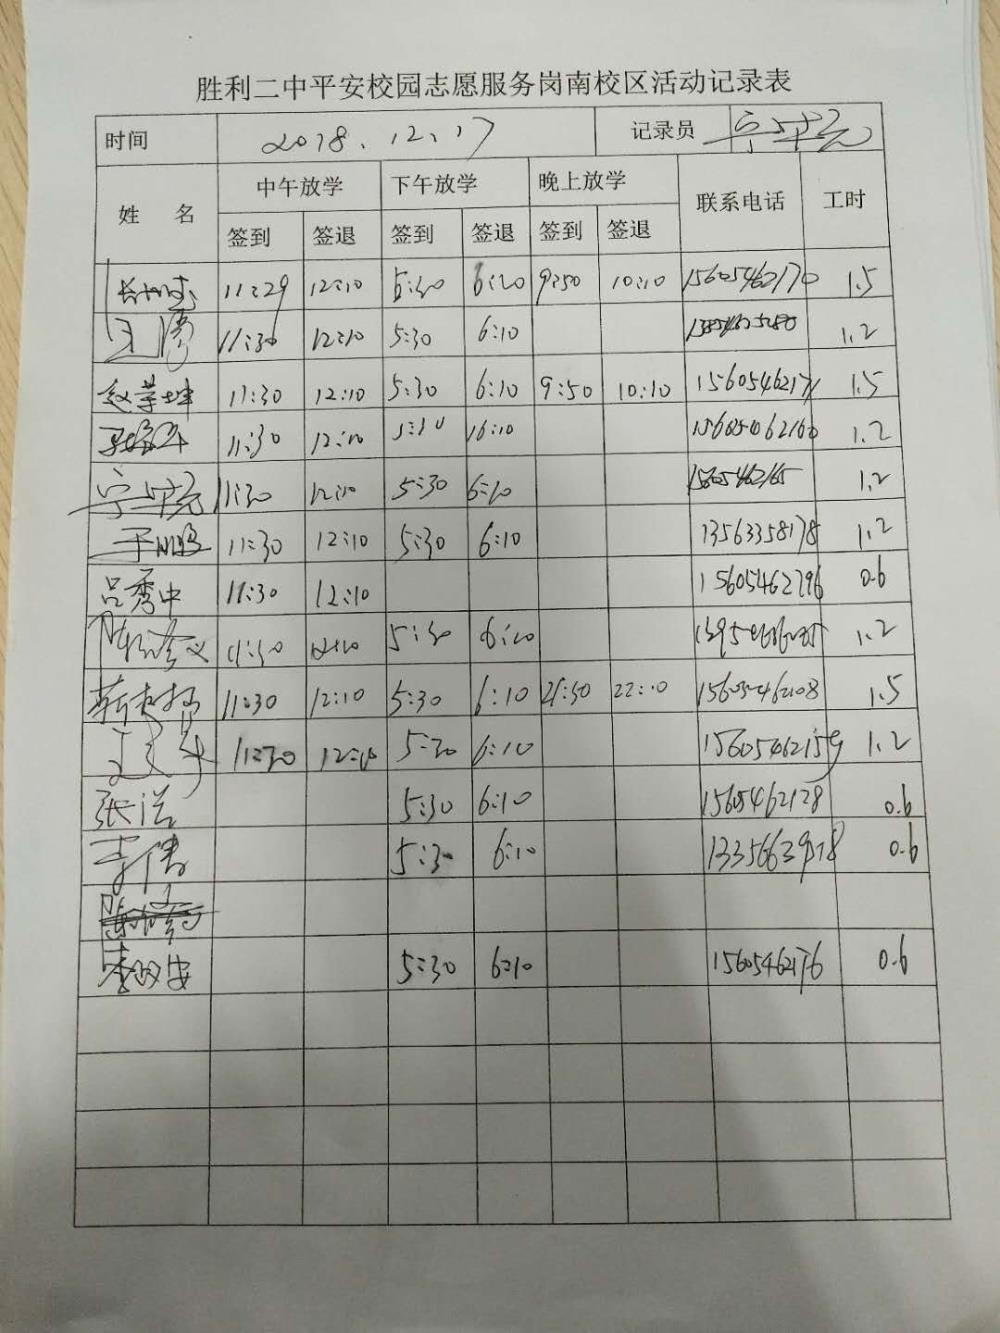 胜利二中平安校园志愿服务岗南校区活动记录表
时间 2018.12.17 记录员
姓 名 中午放学 下午放学 晚上放学 联系电话 工时
签到 签退 签到 签退 签到 签退
11:29 12:10 5:30 6:10 9:50 10:10 15605462170 1.5
王涛 11:30 12:10 5:30 6:10 1.2
赵荣坤 11:30 12:10 5:30 6:10 9:50 10:10 15605462171 1.5
11:30 12:10 5:30 6:10 15605462160 1.2
11:30 12:10 5:30 6:10 15605462165 1.2
于鹏 11:30 12:10 5:30 6:10 13563358178 1.2
吕秀中 11:30 12:10 15605462796 0.6
11:30 12:10 5:30 6:10 1.2
11:30 12:10 5:30 6:10 21:50 22:10 15605462108 1.5
11:30 12:10 5:30 6:10 15605462159 1.2
张浩 5:30 6:10 15605462128 0.6
李伟 5:30 6:10 0.6
李政安 5:30 6:10 15605462176 0.6